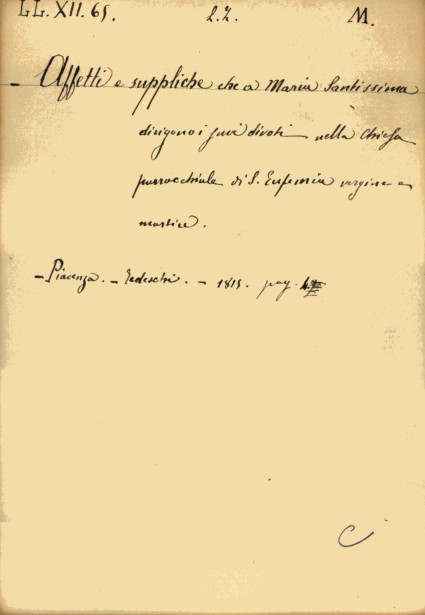 LL.XII.65. 2.2. M.
Affetti e suppliche che a Maria Santissima
dirigono i suoi divoti nella Chiesa
parrocchiale di S. Eufemia vergine e
martire.
- Piacenza. - Tedeschi. - 1815. pag.
C